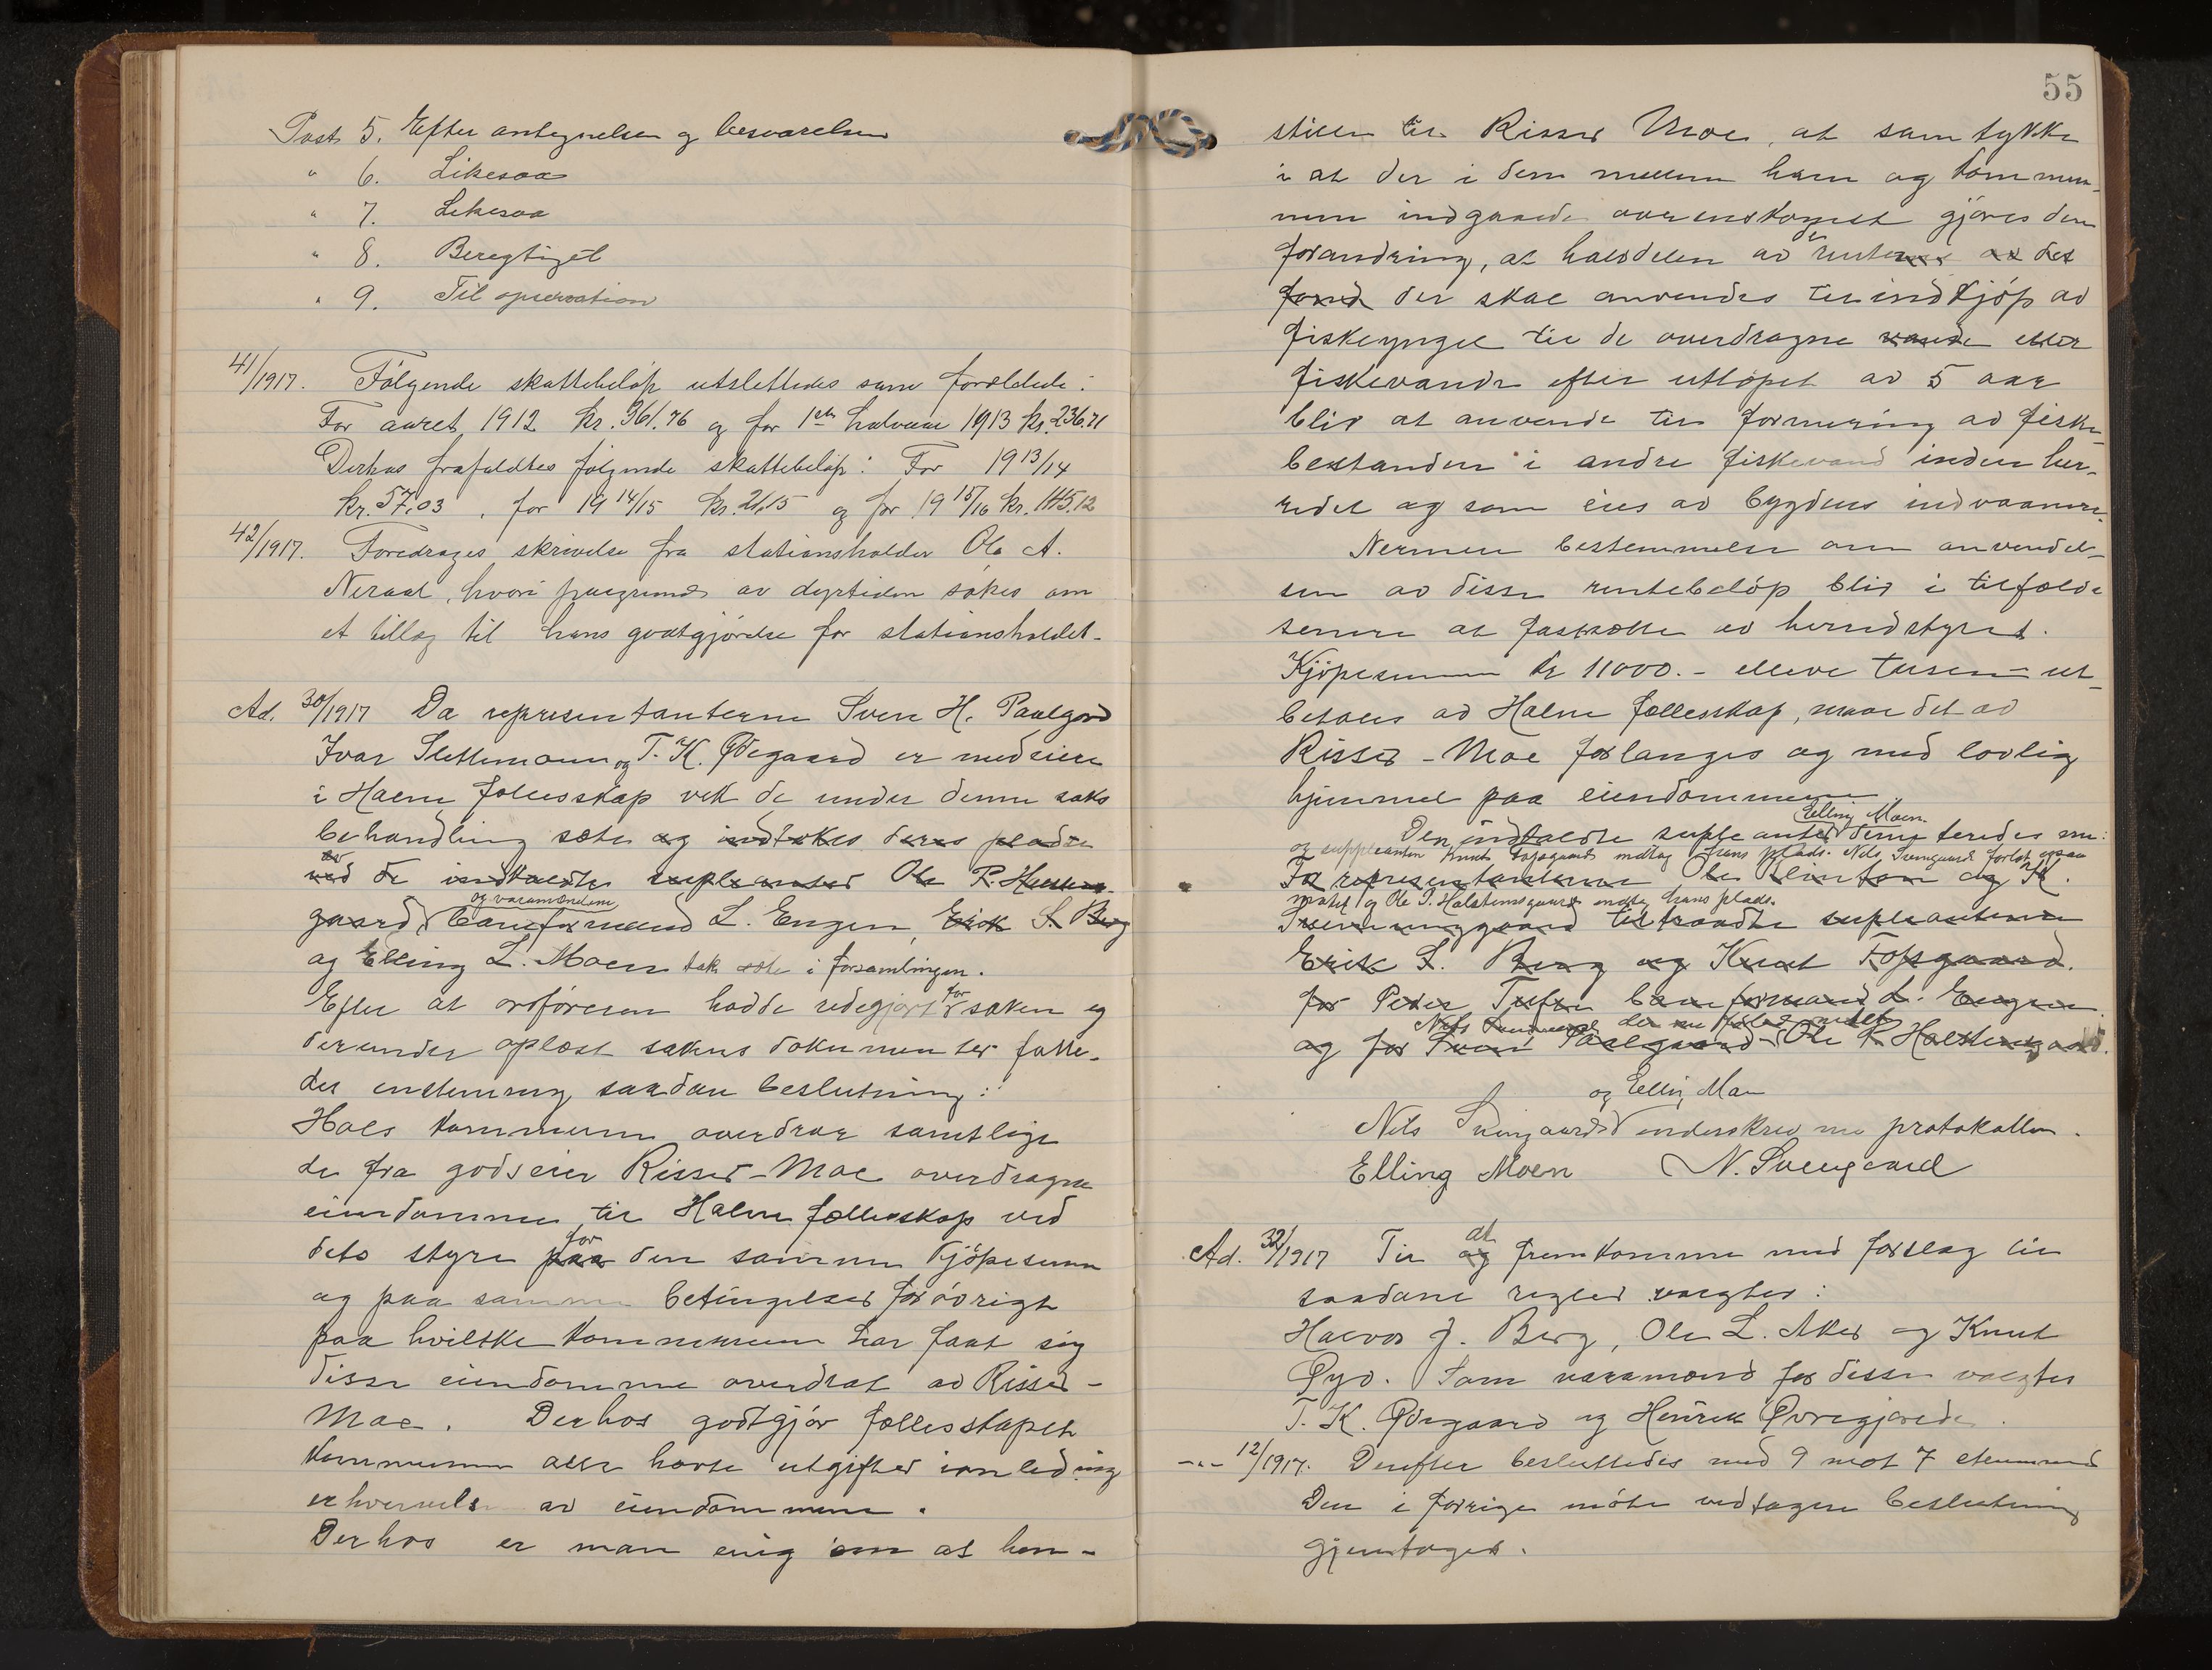 Post 5. Efter antegnelsen og besvarelsen
" 6. Likesaa
" 7. Likesaa
" 8. Beregtiget
" 9. Til observation
41/1917. Følgende skattebeløp utslettedes som forældede:
For aaret 1912 kr. 361.76 og for 1ste halvaar 1913 kr. 236.71
Derhos frafaldtes følgende skattebeløp: For 1913/14
kr. 57.03, for 1914/15 kr. 21.15 og for 1915/16 kr. 145.12
42/1917. Foredrages skrivelse fra stationsholder Ole A.
Neraal, hvori paagrund av dyrtiden søkes om
et tillæg til hans godtgjørelse for stationsholdet.
Ad. 30/1917 Da representanterne Sven H. Paulgard
Ivar Slettemoen og T. K. Ødegaard er medeiere
i Halne fællesskap vek de under denne saks
behandling sæte og indtokes deres pladse
av
ved de indkaldte supleanter Ole P. Halstens-
og varamændene
gaard, baneformand L. Engen, Erik S. Berg
og Elling L. Moen tok sæte i forsamlingen.
Efter at ordføreren hadde redegjort for saken og
derunder oplæst sakens dokumenter fatte-
des enstemmig saadan beslutning:
Hols kommune overdrar samtlige
de fra godseier Risser-Moe overdragne
eiendommer til Halne fællesskap ved
dets styre paa for den samme kjøpesum
og paa samme betingelser forøvrigt
paa hvilke kommunen har faat sig
disse eiendomme overdrat av Risser-
Moe. Derhos godtgjør fællesskapet
kommunen alle havte utgifter i anledning
erhvervelse av eiendommene.
Derhos er man enig om at hen-
55
stille til Risser Moe, at samtykke
i at der i dem mellem ham og kommu-
nen indgaaede overenskomst gjøres den
forandring, at halvdelen av de renterne av det
fond der skal anvendes til indkjøp av
fiskeyngel til de overdragne vande eller
fiskevande efter utløpet av 5 aar
blir at anvende til formering av fiske-
bestanden i andre fiskevand inden her-
redet og som eies av bygdens indvaanere.
Nermere bestemmelse om anvendel-
sen av disse rentebeløp blir i tilfælde
senere at fastsætte av herredstyret.
Kjøpesummen kr 11000.- elleve tusen - ut-
betales av Halne fællesskap, naar det av
Risser-Moe forlanges og med lovlig
hjemmel paa eiendommene.
Elling Moen
Den indkaldte supleanter demiteredes nu:
og suppleanten Knut Fopsgaard indtog hans plads. Nils Svengaard forlot ogsaa
For representanterne Ole og K.
møtet og Ole P. Halstensgaard indtog hans plads.
Svenunggaard tiltraadte supleanterne
Erik S. Berg og Knut Fopsgaard.
for Peder Tufte baneformand L. Engen
Nils Svengaard der nu forlot møtet
og for Sven Paulgaard - Ole P. Halstensgaard.
og Elling Moen
Nils Svengaard underskrev nu protokollen.
Elling Moen N. Svengaard
Ad. 32/1917 Til og at fremkomme med forslag til
saadane regler valgtes:
Halvor J. Berg, Ole L. Aker og Knut
Øyo. Som varamænd for disse valgtes
T. K. Ødegaard og Henrik Øvregjerde.
-"- 12/1917. Derefter besluttedes med 9 mot 7 stemmer
Den i forrige møte vedtagne beslutning
gjentages.